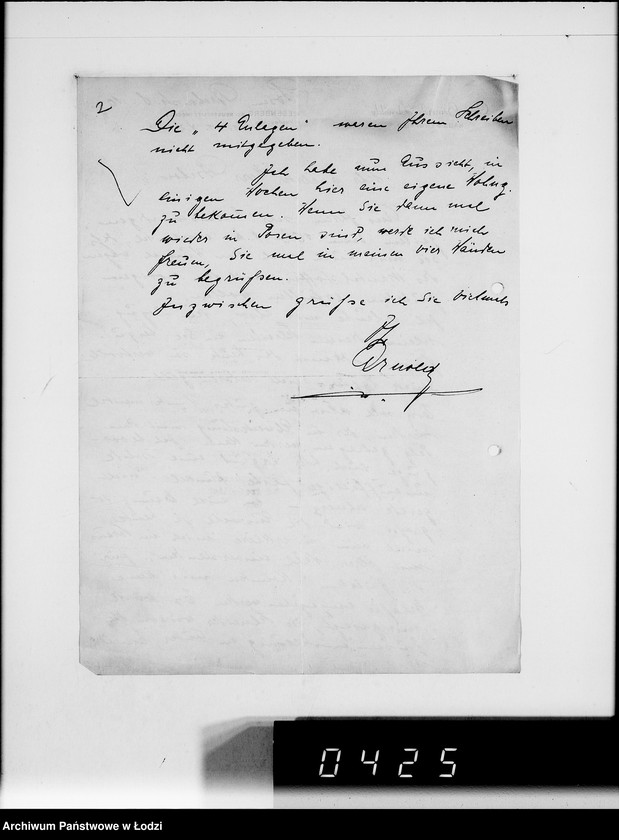 2
Die „4 Anlagen" waren Ihrem Schreiben
nicht mitgegeben.
Ich habe nun Aussicht, in
einigen Wochen hier eine eigene Wohng.
zu bekommen. Wenn Sie dann mal
wieder in Posen sind, werde ich mich
freuen, Sie mal in meinen vier Wänden
zu begrüßen.
Inzwischen grüße ich Sie vielmals
Ihr
0425
Archiwum Państwowe w Łodzi